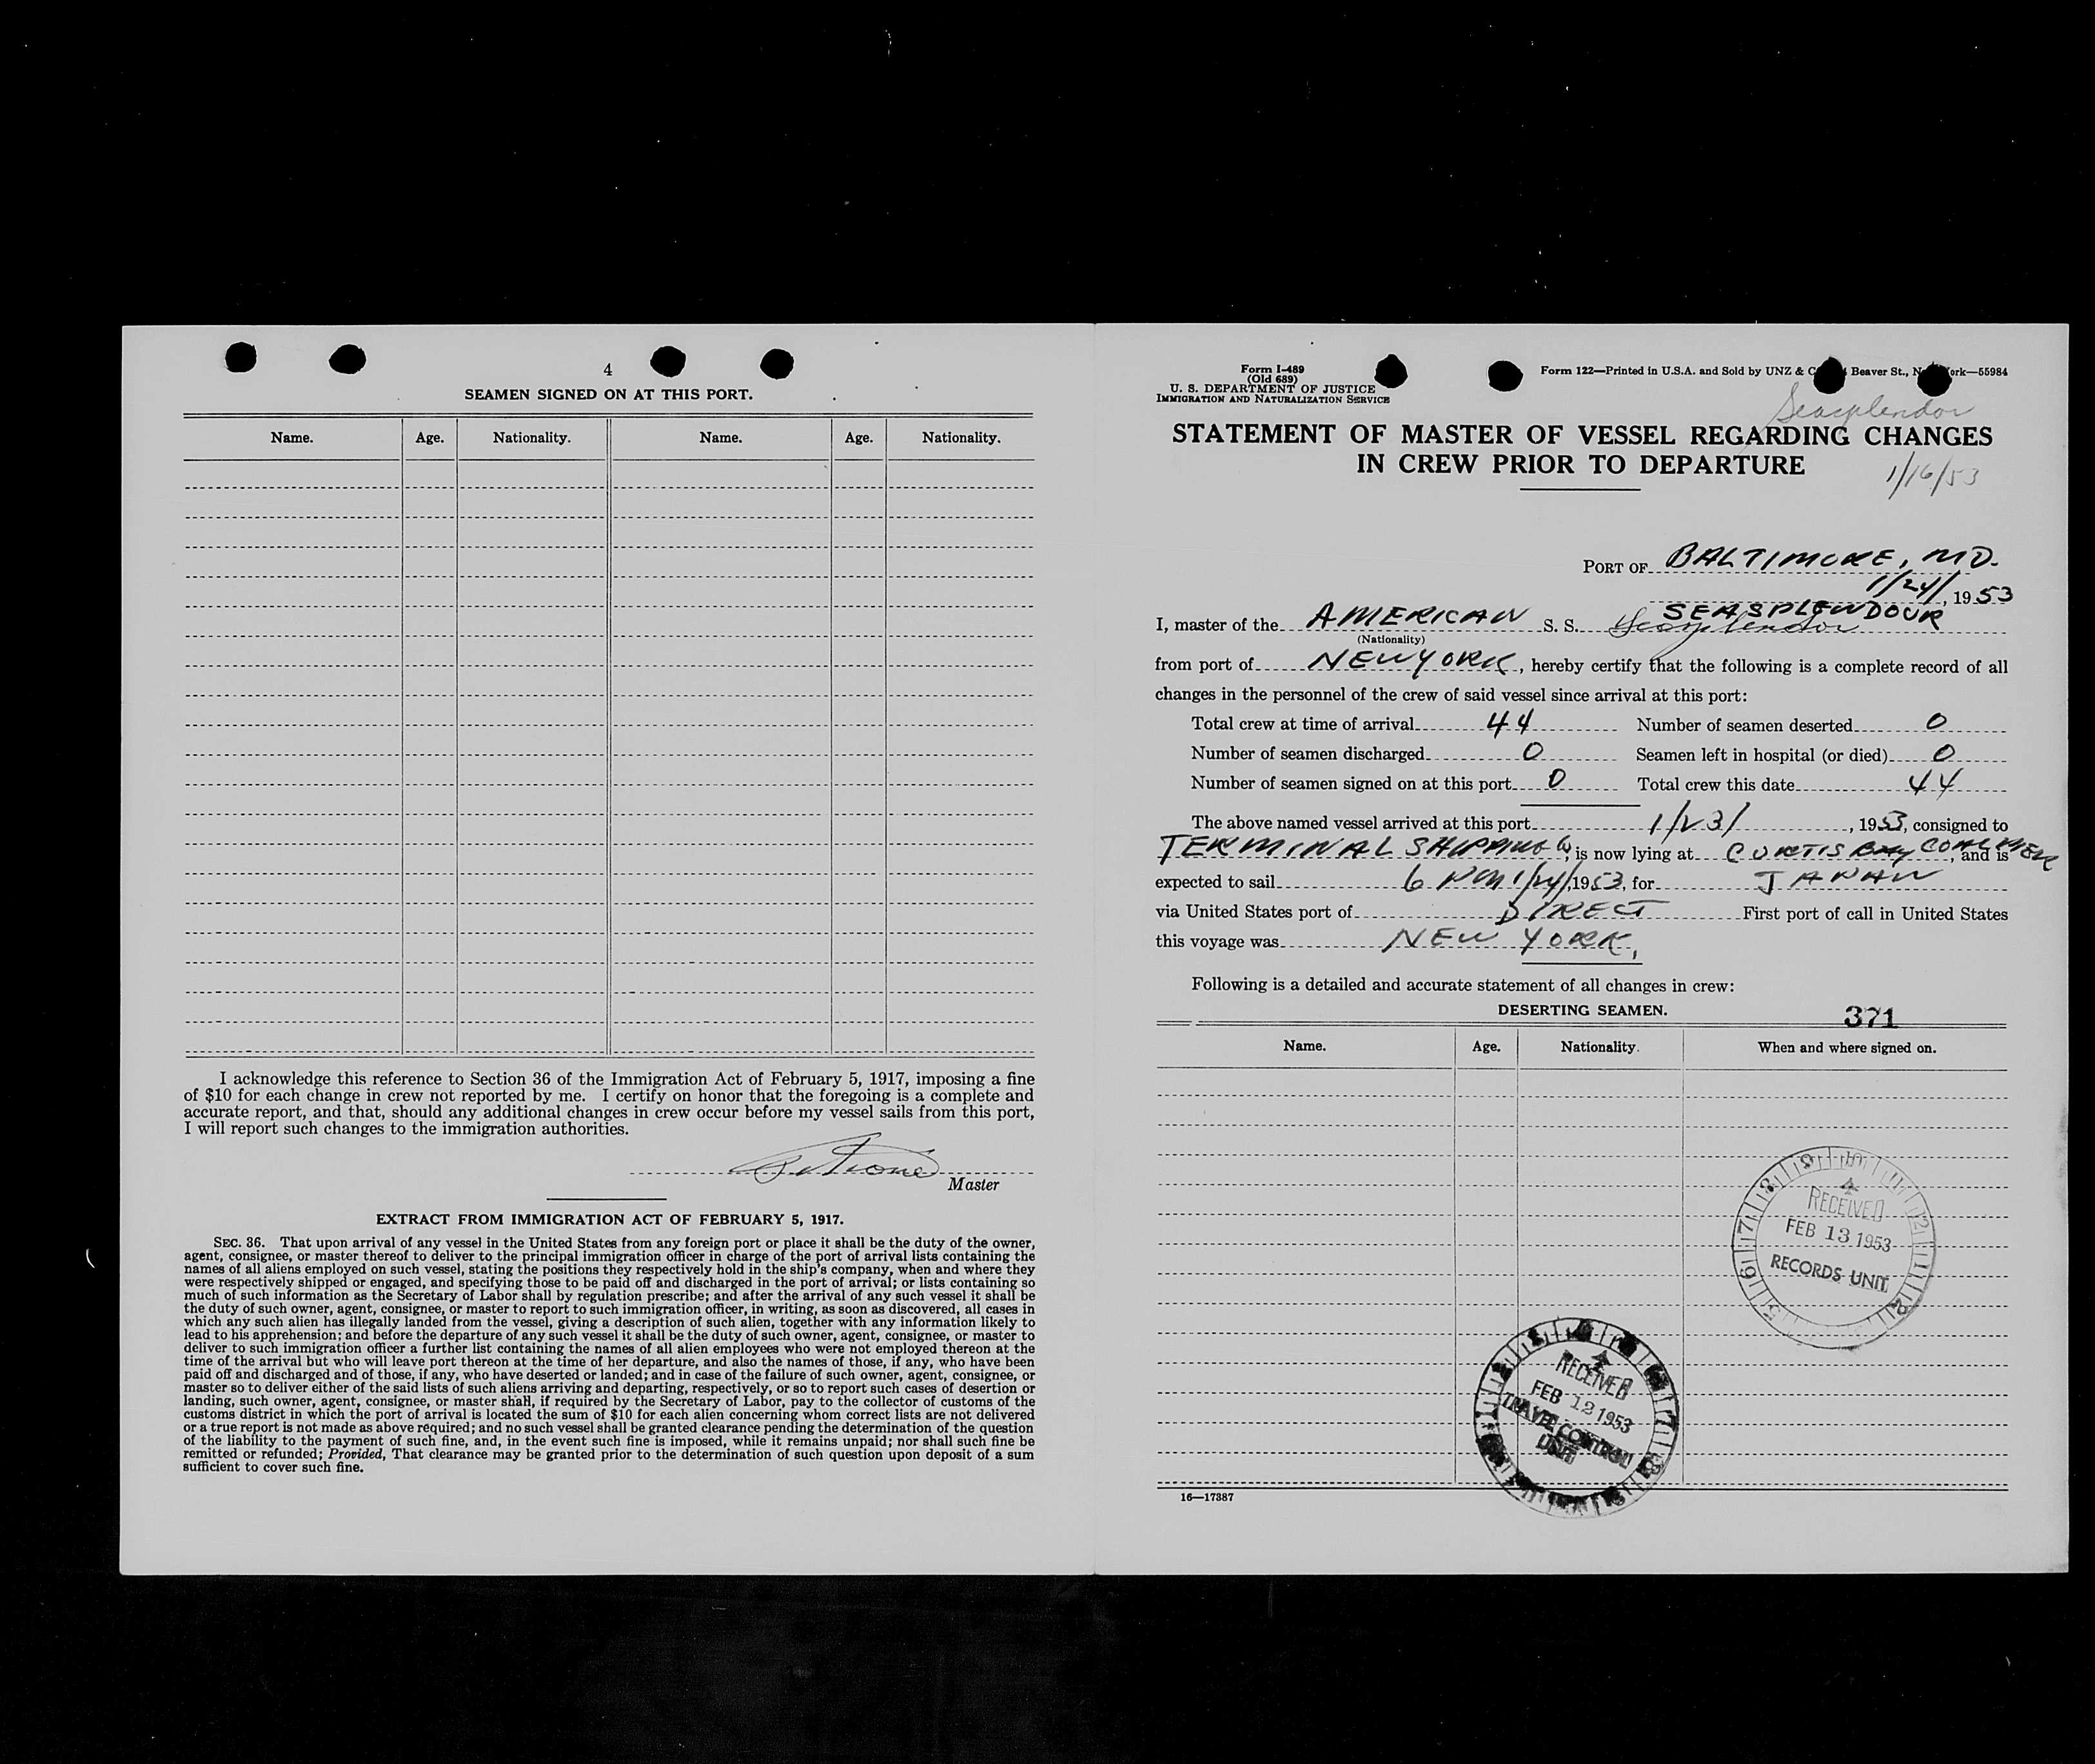 4
SEAMEN SIGNED ON AT THIS PORT.
Name. Age. Nationality. Name. Age. Nationality.
I acknowledge this reference to Section 36 of the Immigration Act of February 5, 1917, imposing a fine
of $10 for each change in crew not reported by me. I certify on honor that the foregoing is a complete and
accurate report, and that, should any additional changes in crew occur before my vessel sails from this port,
I will report such changes to the immigration authorities.
Master
EXTRACT FROM IMMIGRATION ACT OF FEBRUARY 5, 1917.
SEC. 36. That upon arrival of any vessel in the United States from any foreign port or place it shall be the duty of the owner,
agent, consignee, or master thereof to deliver to the principal immigration officer in charge of the port of arrival lists containing the
names of all aliens employed on such vessel, stating the positions they respectively hold in the ship's company, when and where they
were respectively shipped or engaged, and specifying those to be paid off and discharged in the port of arrival; or lists containing so
much of such information as the Secretary of Labor shall by regulation prescribe; and after the arrival of any such vessel it shall be
the duty of such owner, agent, consignee, or master to report to such immigration officer, in writing, as soon as discovered, all cases in
which any such alien has illegally landed from the vessel, giving a description of such alien, together with any information likely to
lead to his apprehension; and before the departure of any such vessel it shall be the duty of such owner, agent, consignee, or master to
deliver to such immigration officer a further list containing the names of all alien employees who were not employed thereon at the
time of the arrival but who will leave port thereon at the time of her departure, and also the names of those, if any, who have been
paid off and discharged and of those, if any, who have deserted or landed; and in case of the failure of such owner, agent, consignee, or
master so to deliver either of the said lists of such aliens arriving and departing, respectively, or so to report such cases of desertion or
landing, such owner, agent, consignee, or master shall, if required by the Secretary of Labor, pay to the collector of customs of the
customs district in which the port of arrival is located the sum of $10 for each alien concerning whom correct lists are not delivered
or a true report is not made as above required; and no such vessel shall be granted clearance pending the determination of the question
of the liability to the payment of such fine, and, in the event such fine is imposed, while it remains unpaid; nor shall such fine be
remitted or refunded; Provided, That clearance may be granted prior to the determination of such question upon deposit of a sum
sufficient to cover such fine.
Form I-489
(Old 689)
U. S. DEPARTMENT OF JUSTICE
IMMIGRATION AND NATURALIZATION SERVICE
Form 122—Printed in U.S.A. and Sold by UNZ & Beaver St., ork—55984
Seasplendor
STATEMENT OF MASTER OF VESSEL REGARDING CHANGES
IN CREW PRIOR TO DEPARTURE
1/16/53
PORT OF BALTIMORE, MD.
1/24/, 1953
I, master of the AMERICAN S. S. Seasplendor SEASPLENDOUR
(Nationality)
from port of NEW YORK, hereby certify that the following is a complete record of all
changes in the personnel of the crew of said vessel since arrival at this port:
Total crew at time of arrival 44 Number of seamen deserted 0
Number of seamen discharged 0 Seamen left in hospital (or died) 0
Number of seamen signed on at this port 0 Total crew this date 44
The above named vessel arrived at this port 1/23/, 1953, consigned to
TERMINAL SHIPPING Co, is now lying at CURTIS BAY COAL PIER, and is
expected to sail 6 PM 1/24/, 1953, for JAPAN
via United States port of DIRECT First port of call in United States
this voyage was NEW YORK.
Following is a detailed and accurate statement of all changes in crew:
DESERTING SEAMEN. 371
Name. Age. Nationality. When and where signed on.
RECEIVED
FEB 13 1953
RECORDS UNIT
RECEIVED
FEB 12 1953
TRAVEL CONTROL
UNIT
16—17387